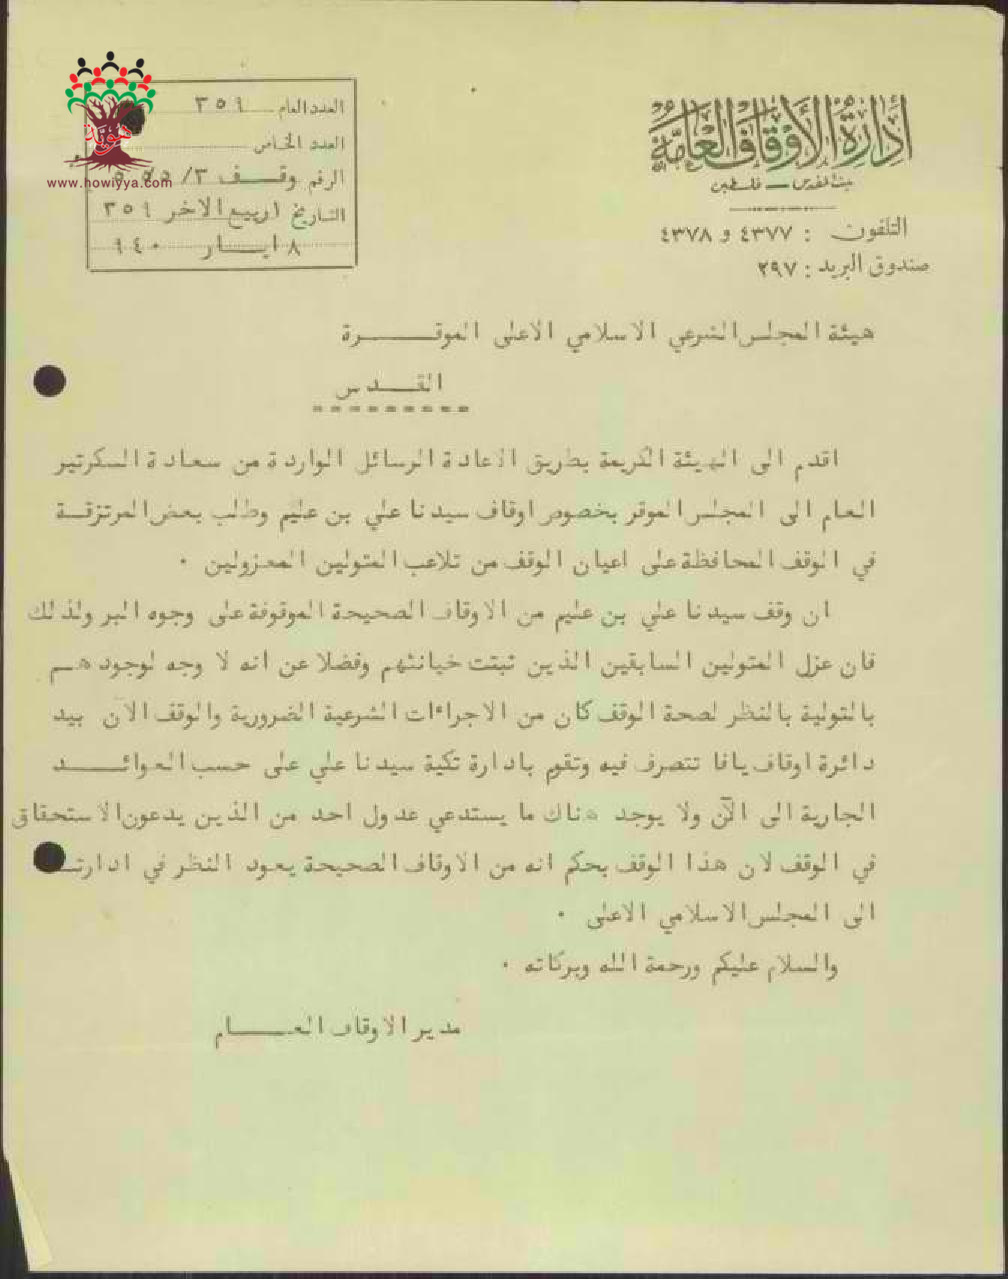 إدارة الأوقاف العامة
بيت المقدس — فلسطين
التلفون : ٤٣٧٧ و ٤٣٧٨
صندوق البريد : ٢٩٧
العدد العام ٣٥٩
العدد الخاص
الرقم وقف ٣/
التاريخ ١ ربيع الاخر ٣٥٩
٨ ايار ٩٤٠
هوية
www.howiyya.com
هيئة المجلس الشرعي الاسلامي الاعلى الموقرة
القدس
اقدم الى الهيئة الكريمة بطريق الاعادة الرسائل الواردة من سعادة السكرتير
العام الى المجلس الموقر بخصوص اوقاف سيدنا علي بن عليم وطلب بعض المرتزقة
في الوقف المحافظة على اعيان الوقف من تلاعب المتولين المعزولين .
ان وقف سيدنا علي بن عليم من الاوقاف الصحيحة الموقوفة على وجوه البر ولذلك
فان عزل المتولين السابقين الذين ثبتت خيانتهم وفضلا عن انه لا وجه لوجودهم
بالتولية بالنظر لصحة الوقف كان من الاجراءات الشرعية الضرورية والوقف الآن بيد
دائرة اوقاف يافا تتصرف فيه وتقوم بادارة تكية سيدنا علي على حسب العوائد
الجارية الى الآن ولا يوجد هناك ما يستدعي عدول احد من الذين يدعون الاستحقاق
في الوقف لان هذا الوقف بحكم انه من الاوقاف الصحيحة يعود النظر في ادارته
الى المجلس الاسلامي الاعلى .
والسلام عليكم ورحمة الله وبركاته .
مدير الاوقاف العام